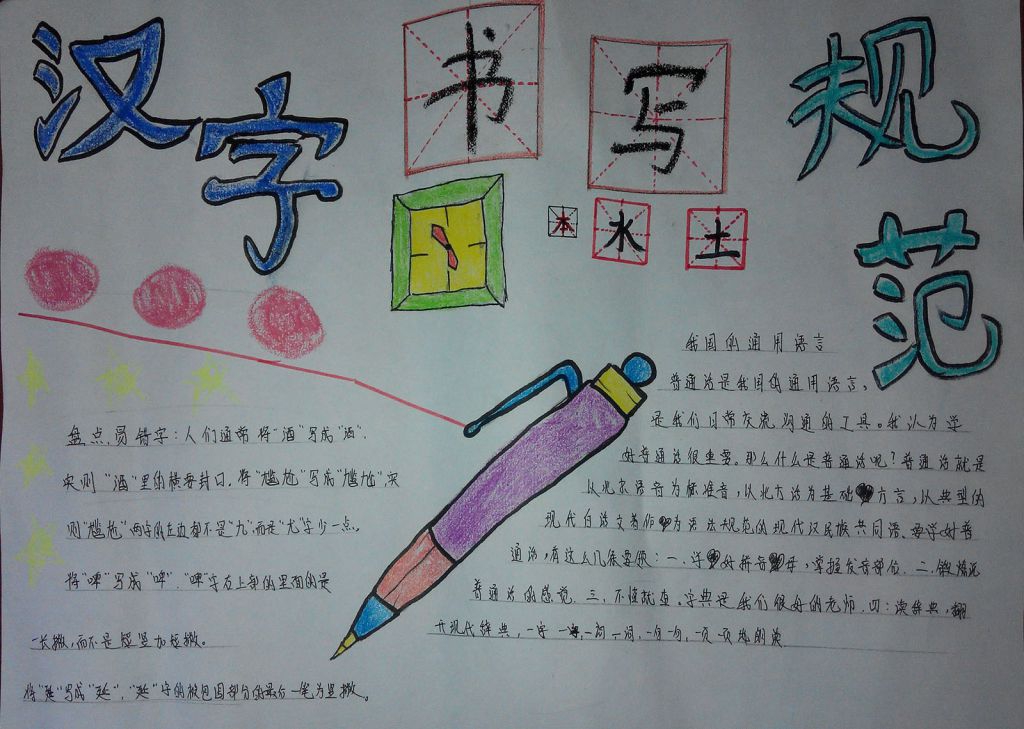 汉字书写规范
本 水 土
盘点易错字：人们通常将"酒"写成"洒"，
实则"酒"里的横要封口。将"尴尬"写成"尴尬"，实
则"尴尬"两字的左边都不是"九"，而是"尤"字少一点。
将"啤"写成"啤"，"啤"字右上部的里面的是
一长撇，而不是短竖加短撇。
将"延"写成"延"，"延"字的被包围部分的最后一笔为竖撇。
我国的通用语言
普通话是我国的通用语言，
是我们日常交流沟通的工具。我认为学
好普通话很重要。那么什么是普通话呢？普通话就是
以北京语音为标准音，以北方话为基础方言，以典型的
现代白话文著作为语法规范的现代汉民族共同语。要学好普
通话，有这么几条要领：一、学好拼音字母，掌握发音部位。二、锻炼说
普通话的感觉。三、不懂就查。字典是我们很好的老师。四：读辞典，翻
开现代辞典，一字一字，一词一词，一句一句，一页一页地朗读